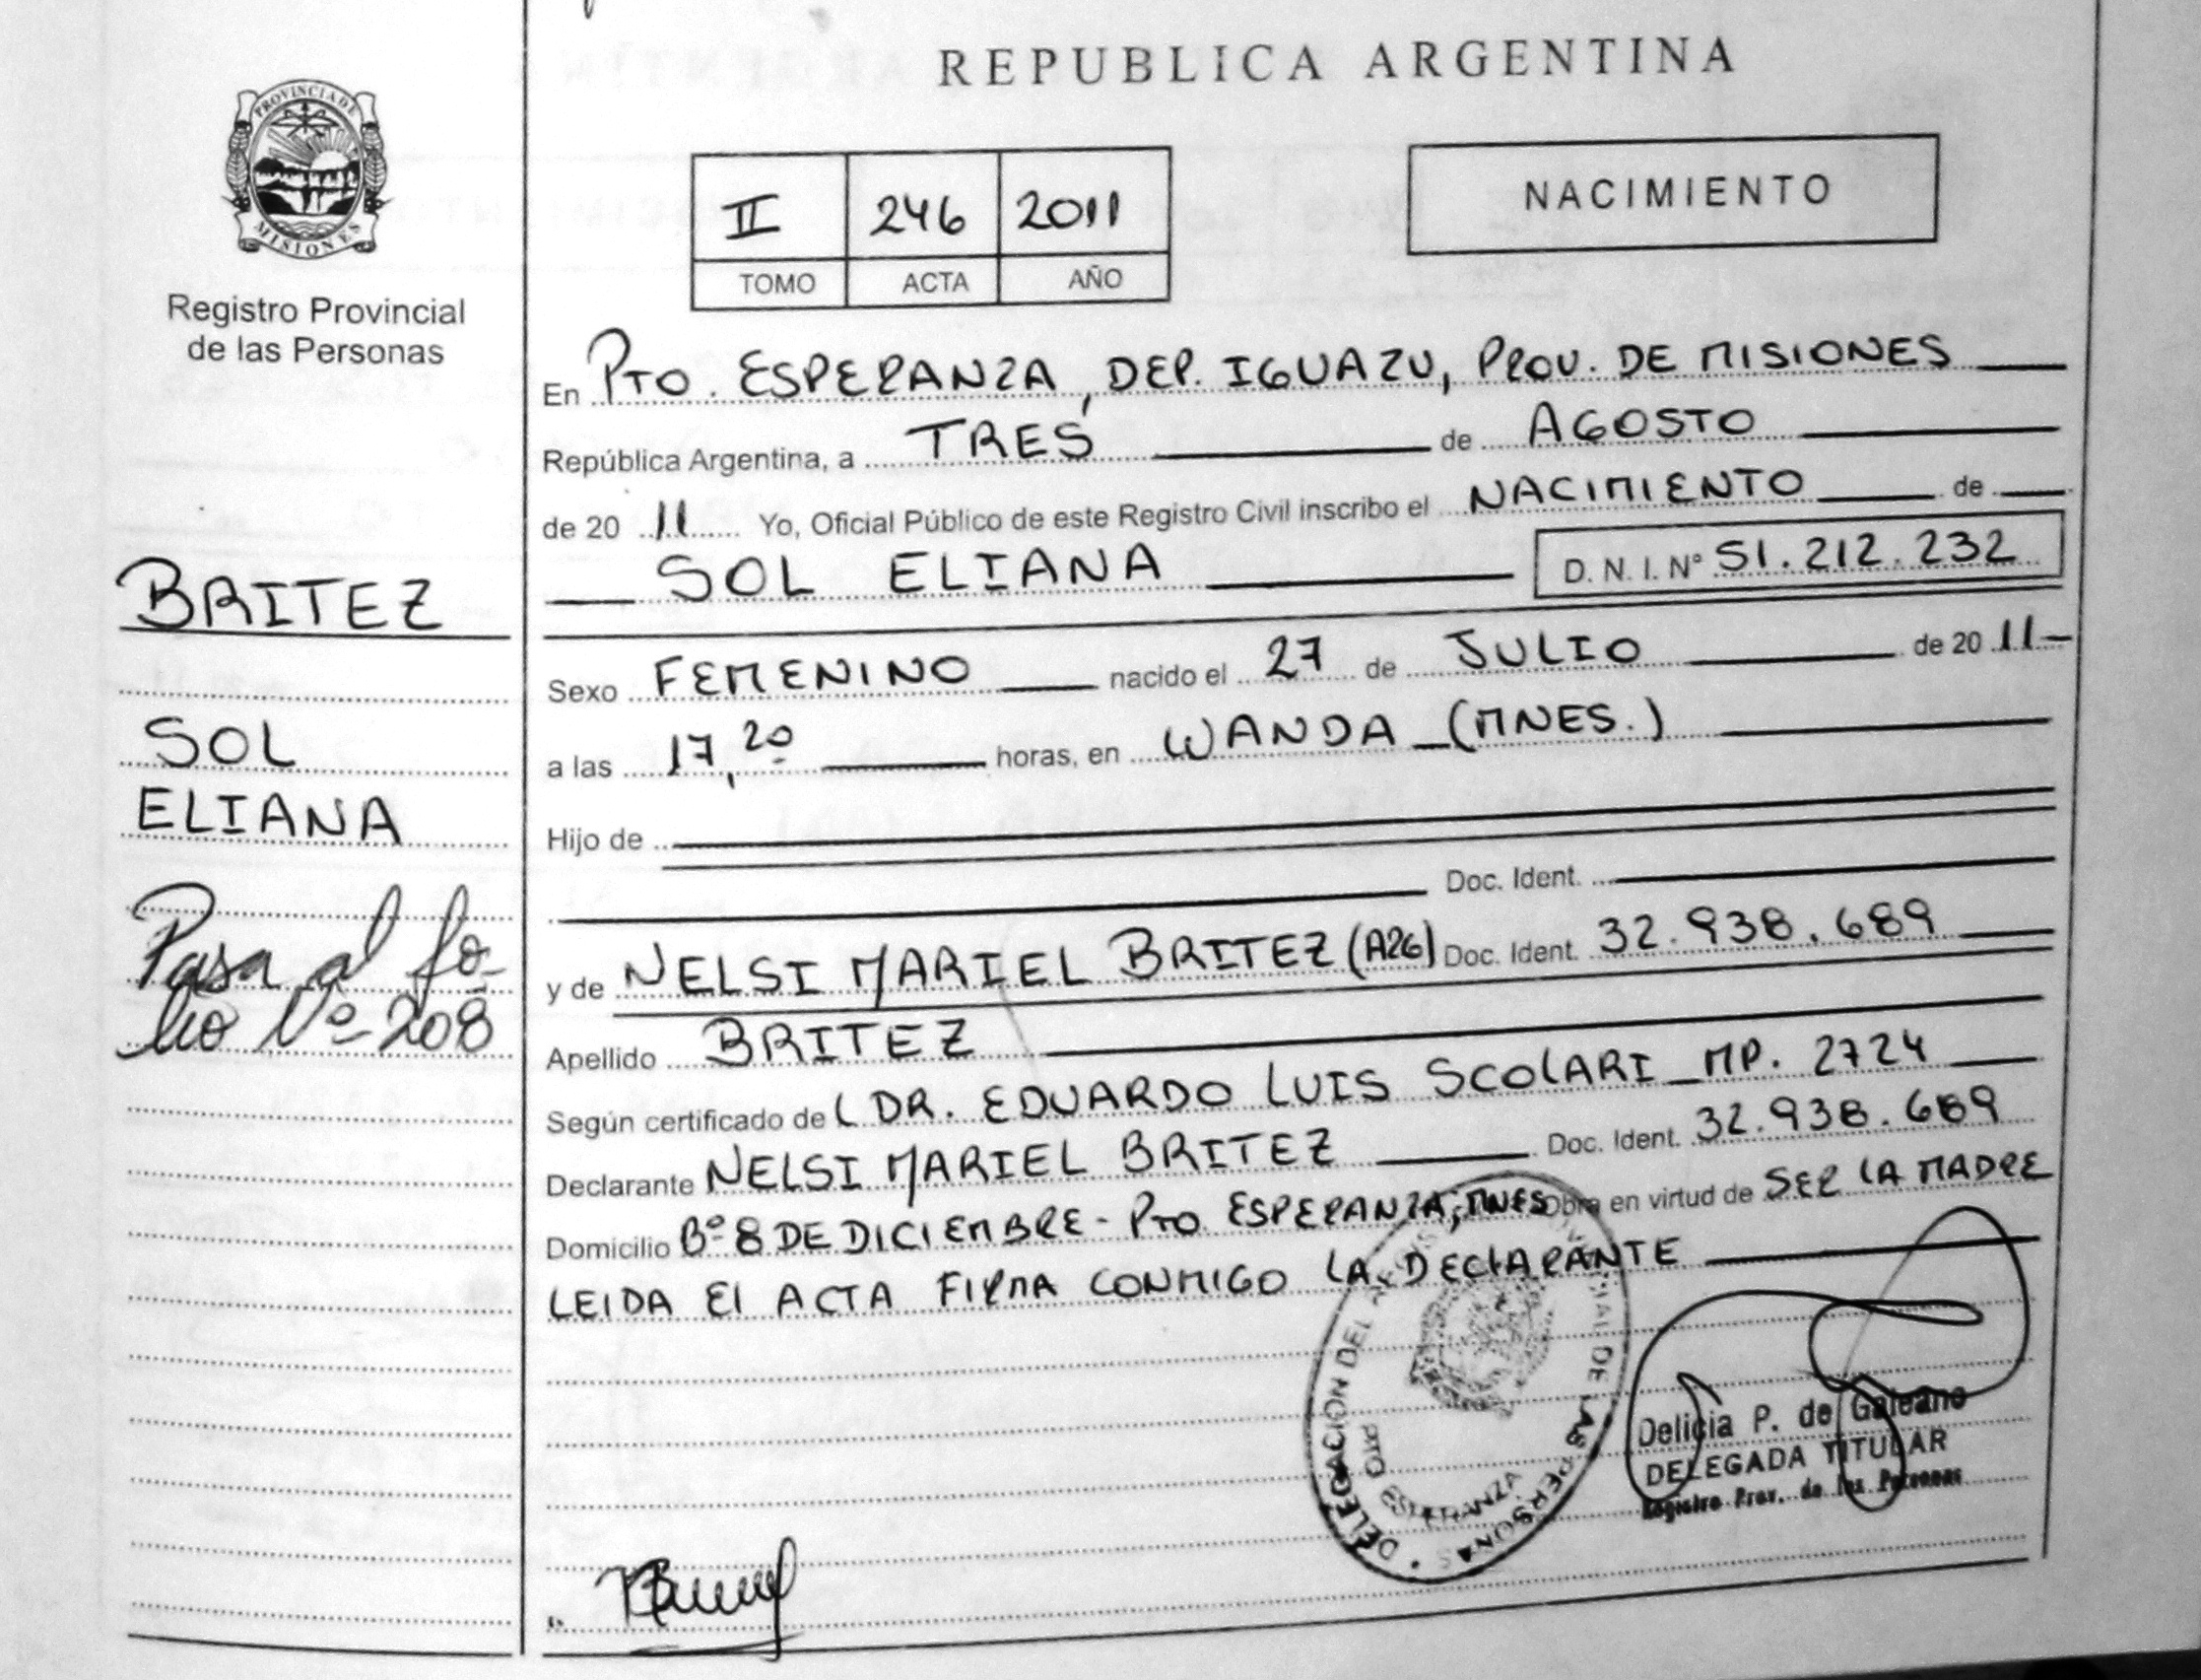 REPUBLICA ARGENTINA
PROVINCIA DE
MISIONES
Registro Provincial
de las Personas
II 246 2011
TOMO ACTA AÑO
NACIMIENTO
En PTO. ESPERANZA, DEP. IGUAZU, PROV. DE MISIONES
República Argentina, a TRES de AGOSTO
de 20 11 Yo, Oficial Público de este Registro Civil inscribo el NACIMIENTO de
SOL ELIANA D. N. I. Nº 51.212.232
BRITEZ
Sexo FEMENINO nacido el 27 de JULIO de 20 11-
SOL
a las 17,20 horas, en WANDA _(MNES.)
ELIANA
Hijo de
Doc. Ident.
Pasa al fo-
lio Nº 208
y de NELSI MARIEL BRITEZ (A26) Doc. Ident. 32.938.689
Apellido BRITEZ
Según certificado de L DR. EDUARDO LUIS SCOLARI _MP. 2724
Declarante NELSI MARIEL BRITEZ Doc. Ident. 32.938.689
Domicilio Bº 8 DE DICIEMBRE - PTO ESPERANZA, MNES Obra en virtud de SER LA MADRE
LEIDA El ACTA FIRMA CONMIGO LA DECLARANTE
DELEGACION DEL DE LAS PERSONAS
PTO ESPERANZA
Delicia P. de Galeano
DELEGADA TITULAR
Registro Prov. de las Personas